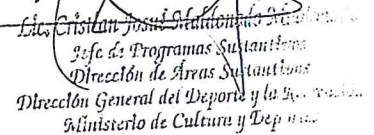 Lic. Cristian Josué Maldonado
Jefe de Programas Sustantivos
Dirección de Áreas Sustantivas
Dirección General del Deporte y la
Ministerio de Cultura y Dep